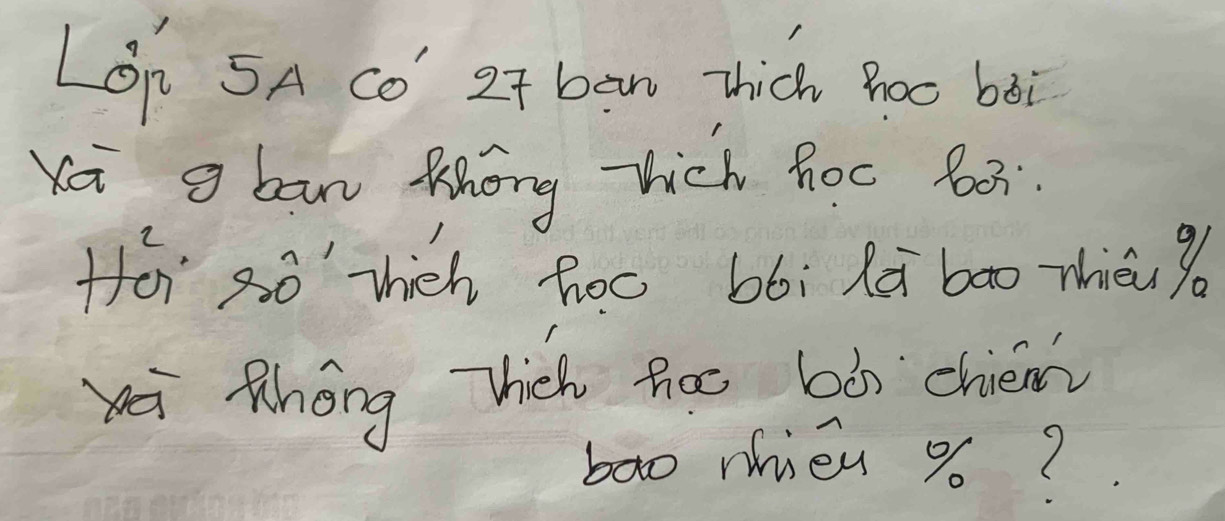 Lớp 5A có 27 bạn thích học bơi
và 9 bạn không thích học bơi.
Hỏi số thích học bơi là bao nhiêu %
và không thích học bơi chiếm
bao nhiêu % ?